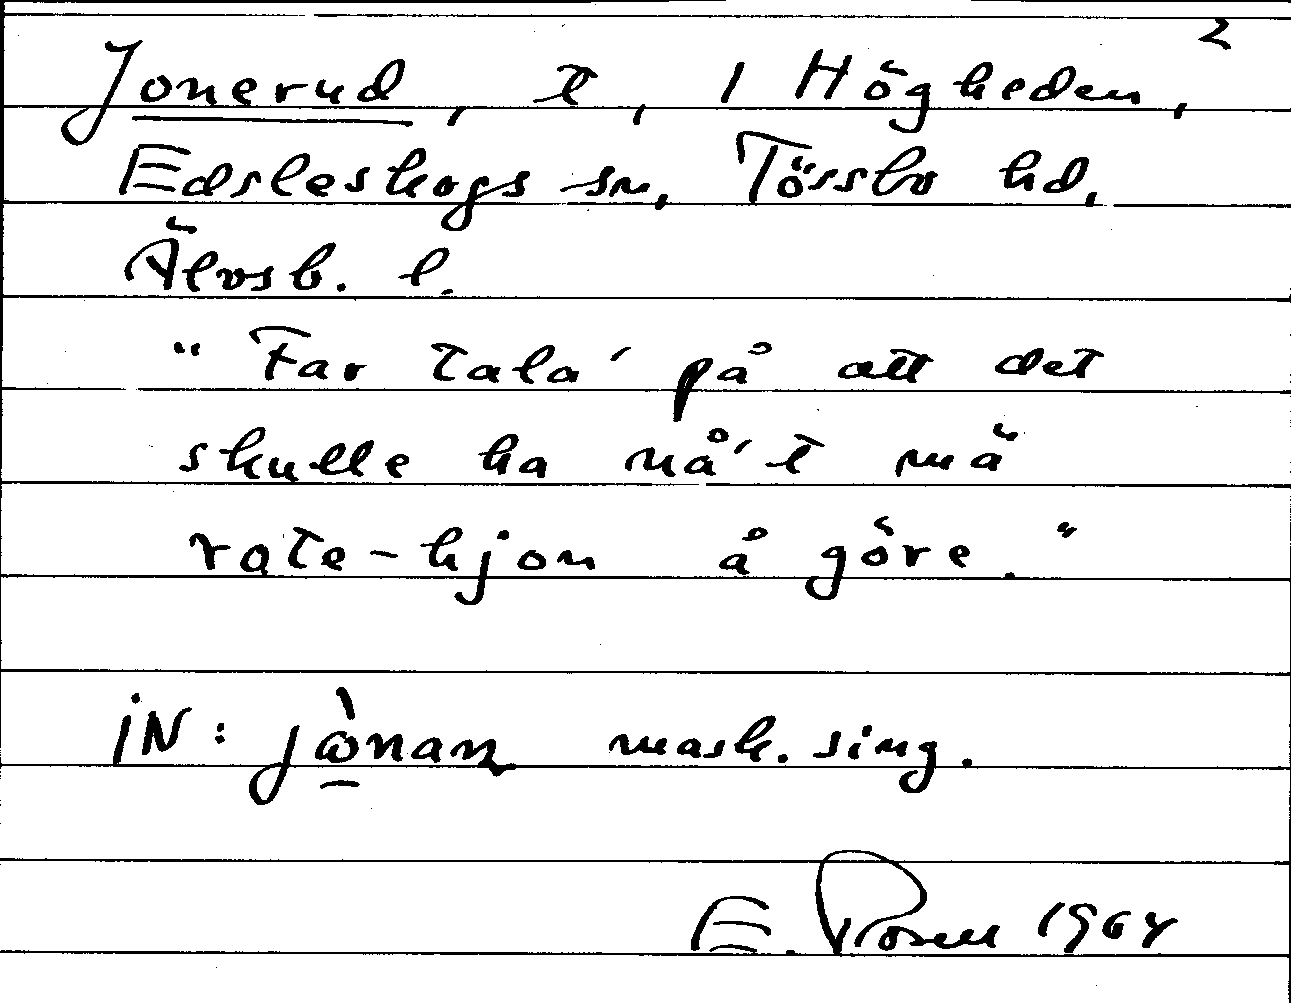 2
Jonerud, t, 1 Högheden,
Edsleskogs sn, Tössbo hd,
Älvsb. l.
"Far tala' på att det
skulle ha nå't mä
rate-hjon å göre."
iN: jònan mask. sing.
E. Rosén 1964